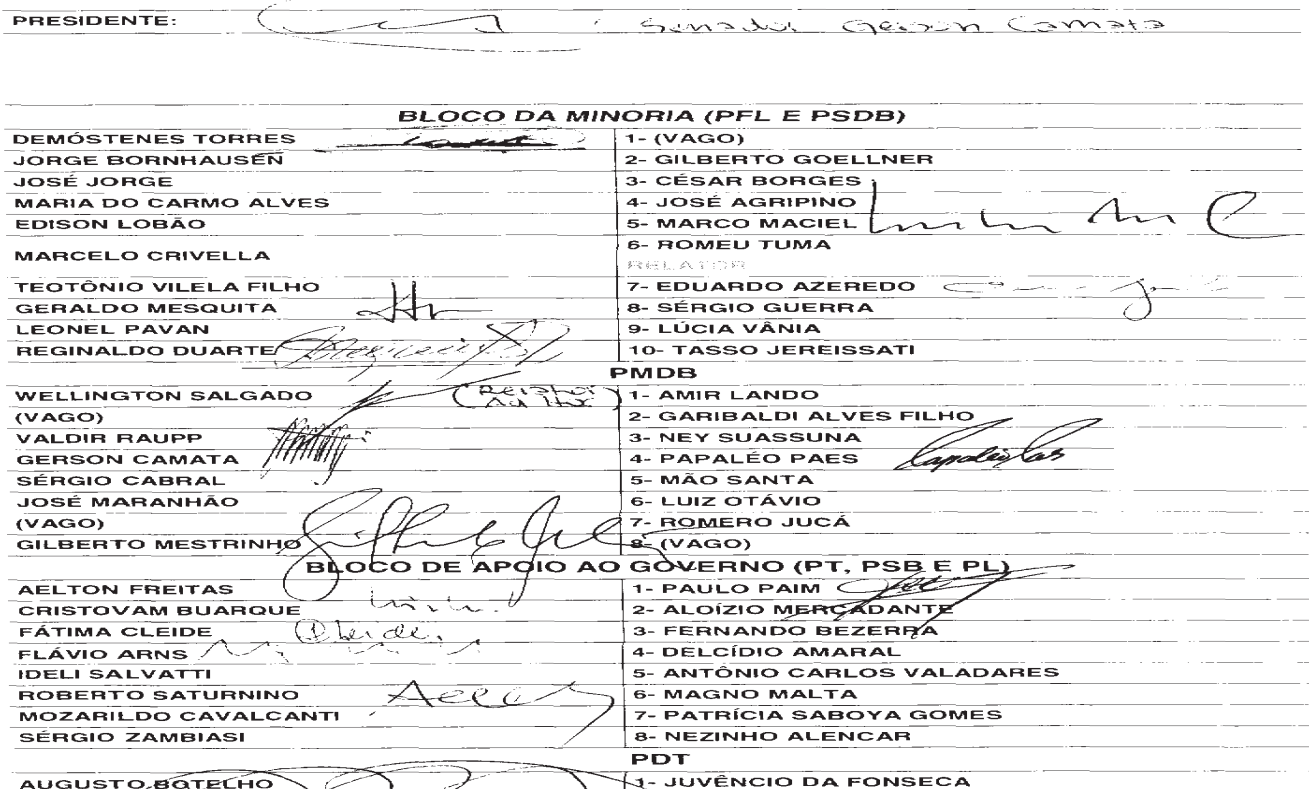 PRESIDENTE: : Senador Gerson Camata
BLOCO DA MINORIA (PFL E PSDB)
DEMÓSTENES TORRES 1- (VAGO)
JORGE BORNHAUSEN 2- GILBERTO GOELLNER
JOSÉ JORGE 3- CÉSAR BORGES
MARIA DO CARMO ALVES 4- JOSÉ AGRIPINO
EDISON LOBÃO 5- MARCO MACIEL
MARCELO CRIVELLA 6- ROMEU TUMA
RELATOR
TEOTÔNIO VILELA FILHO 7- EDUARDO AZEREDO
GERALDO MESQUITA 8- SÉRGIO GUERRA
LEONEL PAVAN 9- LÚCIA VÂNIA
REGINALDO DUARTE 10- TASSO JEREISSATI
PMDB
WELLINGTON SALGADO (Relator Ad Hoc) 1- AMIR LANDO
(VAGO) 2- GARIBALDI ALVES FILHO
VALDIR RAUPP 3- NEY SUASSUNA
GERSON CAMATA 4- PAPALÉO PAES
SÉRGIO CABRAL 5- MÃO SANTA
JOSÉ MARANHÃO 6- LUIZ OTÁVIO
(VAGO) 7- ROMERO JUCÁ
GILBERTO MESTRINHO 8- (VAGO)
BLOCO DE APOIO AO GOVERNO (PT, PSB E PL)
AELTON FREITAS 1- PAULO PAIM
CRISTOVAM BUARQUE 2- ALOÍZIO MERCADANTE
FÁTIMA CLEIDE Cleide 3- FERNANDO BEZERRA
FLÁVIO ARNS 4- DELCÍDIO AMARAL
IDELI SALVATTI 5- ANTÔNIO CARLOS VALADARES
ROBERTO SATURNINO 6- MAGNO MALTA
MOZARILDO CAVALCANTI 7- PATRÍCIA SABOYA GOMES
SÉRGIO ZAMBIASI 8- NEZINHO ALENCAR
PDT
AUGUSTO BOTELHO 1- JUVÊNCIO DA FONSECA